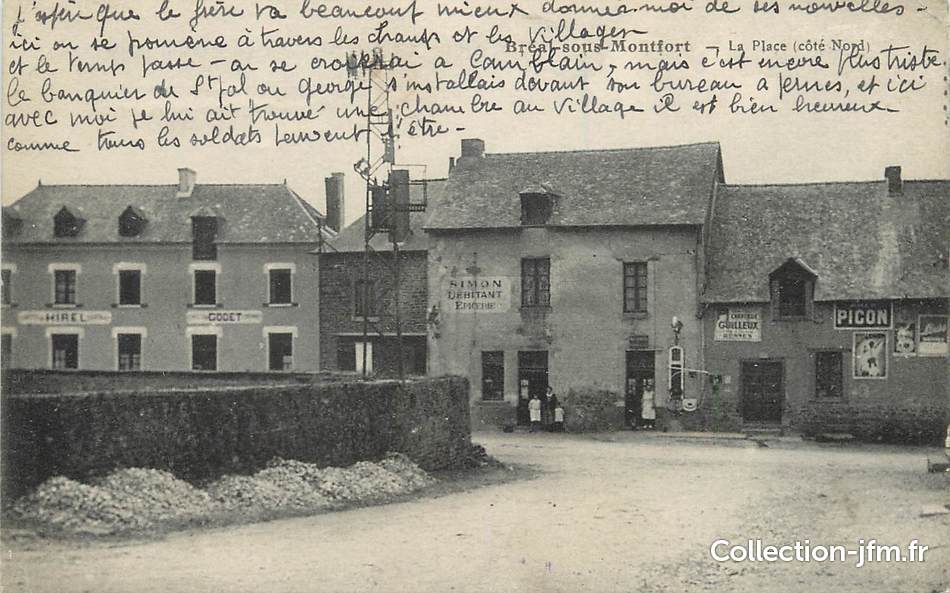 J'espère que le frère va beaucoup mieux donnez moi de ses nouvelles -
ici on se pomène à travers les champs et les villages
et le temps passe - on se croirai à Camblain, mais c'est encore plus triste.
le banquier de St Pol ou george s'installais devant son bureau a pernes, et ici
avec moi je lui ait trouvé une chambre au village il est bien heureux
comme tous les soldats peuvent l'être -
Bréal-sous-Montfort - La Place (côté Nord)
HIREL
GODET
SIMON
DÉBITANT
EPICERIE
GUILLEUX
RENNES
PICON
Collection-jfm.fr